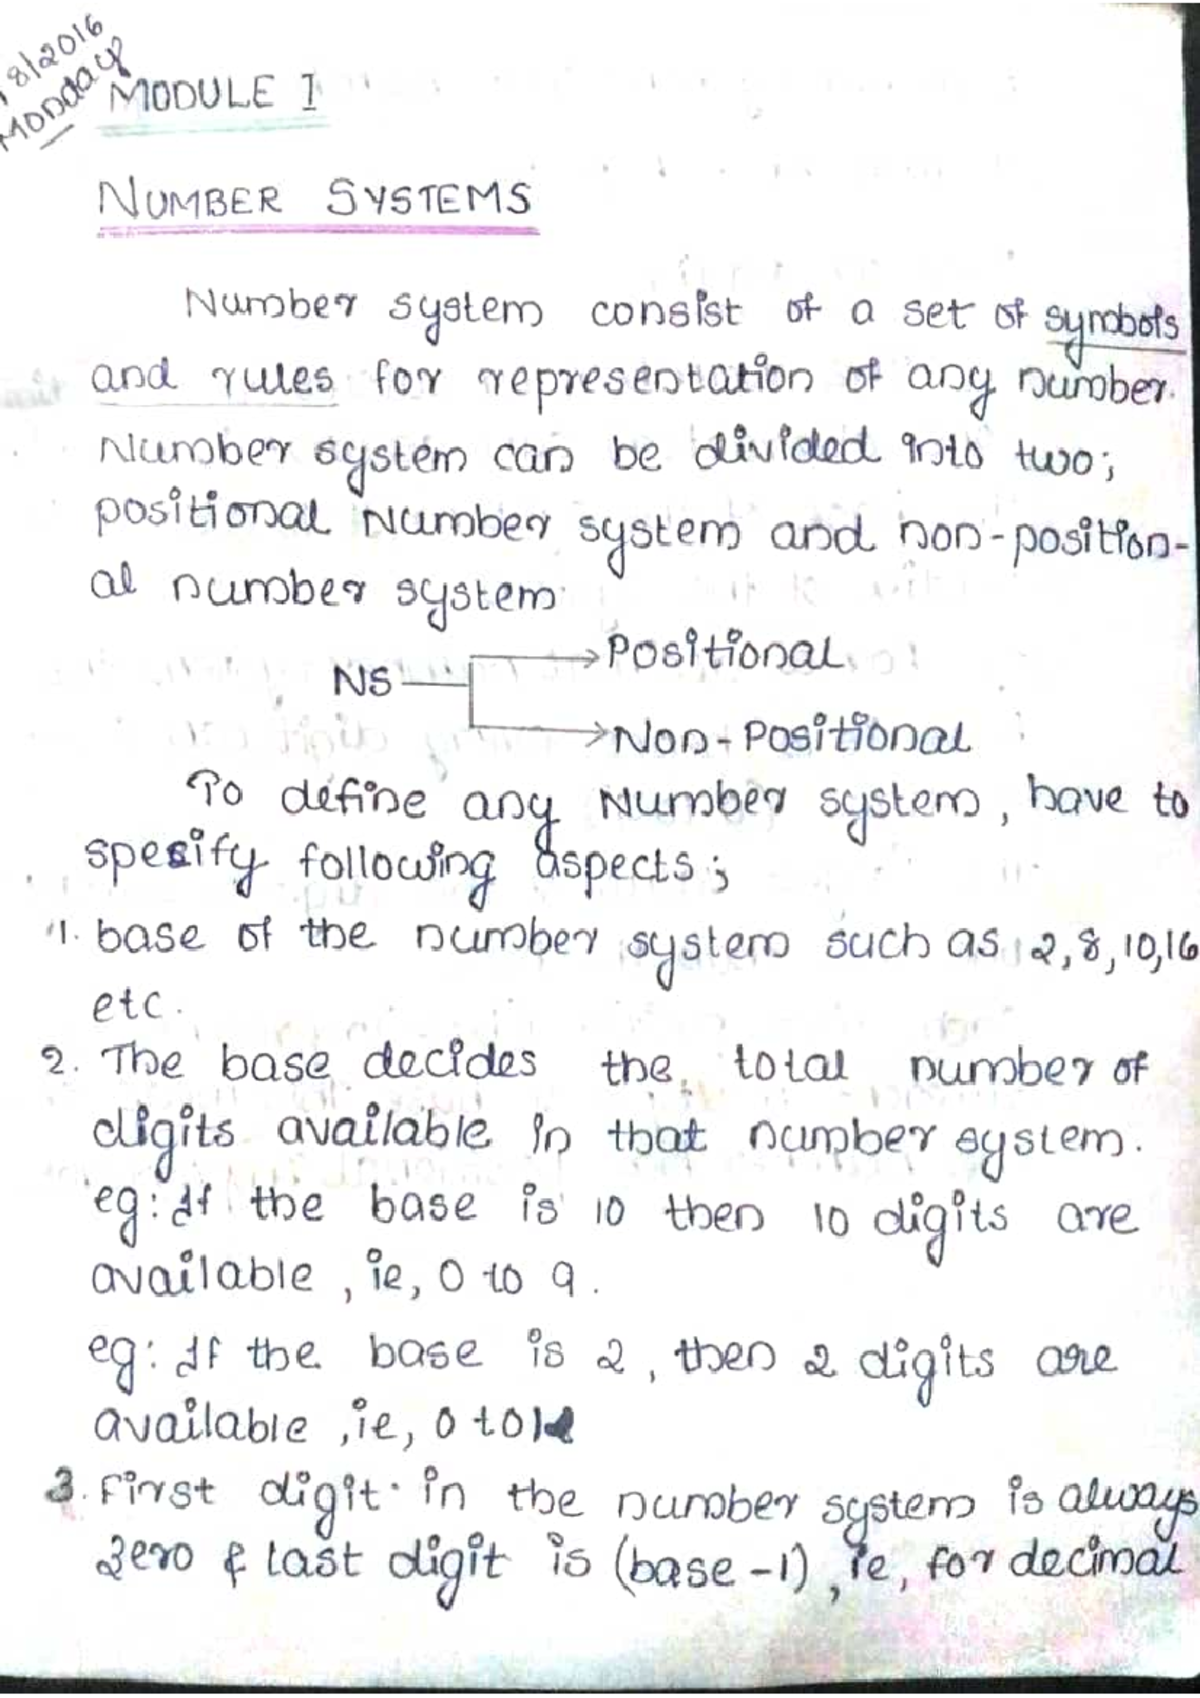 8/2016
Monday
MODULE I
NUMBER SYSTEMS
Number system consist of a set of symbols
and rules for representation of any number.
Number system can be divided into two;
positional Number system and non-position-
al number system
NS
Positional
Non-Positional
To define any Number system, have to
specify following aspects;
1. base of the number system such as 2,8,10,16
etc.
2. The base decides the total number of
digits available in that number system.
eg: If the base is 10 then 10 digits are
available, ie, 0 to 9.
eg: If the base is 2, then 2 digits are
available, ie, 0 to 1
3. First digit in the number system is always
zero & last digit is (base-1), ie, for decimal